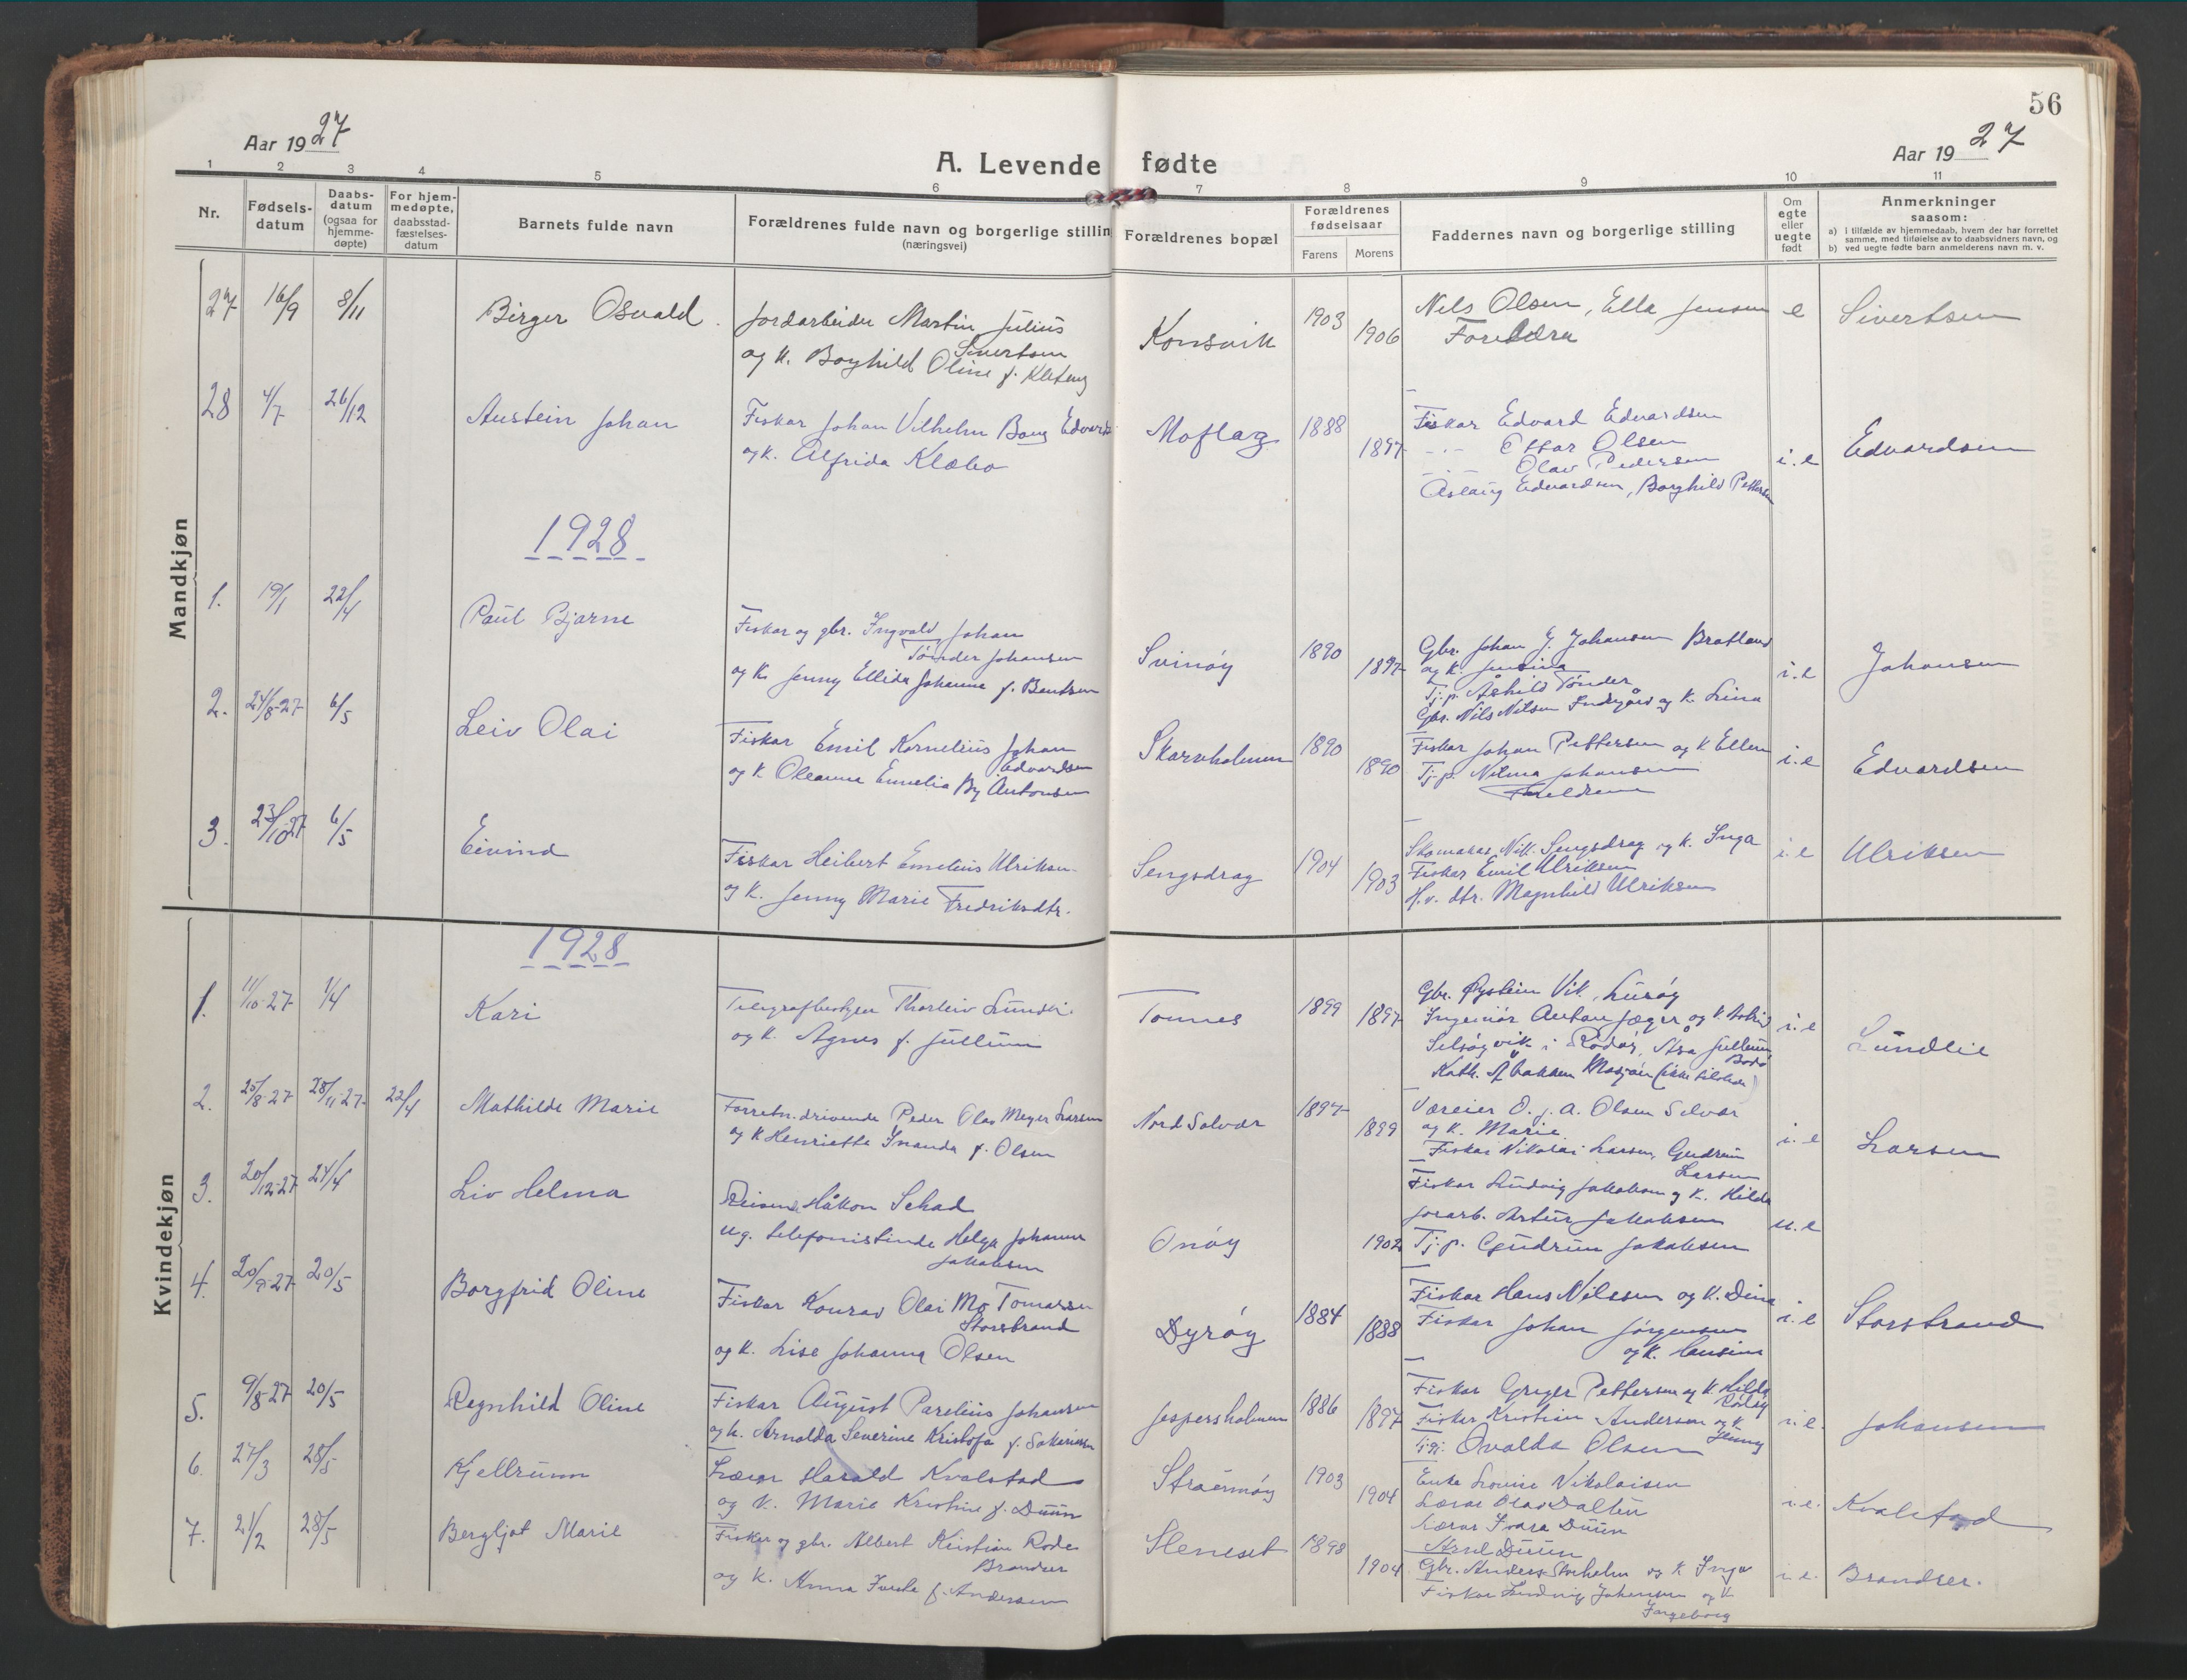 56
Aar 1927
A. Levende fødte
Aar 1927
1 2 3 4 5 6 7 8 9 10 11
Nr.
Fødsels-
datum
Daabs-
datum
(ogsaa for
hjemme-
døpte)
For hjem-
medøpte,
daabsstad-
fæstelses-
datum
Barnets fulde navn
Forældrenes fulde navn og borgerlige stillin
(næringsvei)
Forældrenes bopæl
Forældrenes
fødselsaar
Farens Morens
Faddernes navn og borgerlige stilling
Om
egte
eller
uegte
født
Anmerkninger
saasom:
a) i tilfælde av hjemmedaab, hvem der har forrettet
samme, med tilføielse av to daabsvidners navn, og
b) ved uegte fødte barn anmelderens navn m. v.
Mandkjøn
27 16/9 8/11 Birger Osvald
Jordarbeider Martin Julius
Sivertsen
og k. Borghild Oline f.
Konsvik 1903 1906
Nels Olsen, Ella Jensen
Foreldra
e Sivertsen
28 4/7 26/12 Austein Johan
Fiskar Johan Vilhelm Bang Edvards
og k. Alfrida Klæbo
Moflag 1888 1897
Fiskar Edvard Edvardsen
-"- Ottar Olsen
-"- Olav Pedersen
Aslaug Edvardsen, Borghild Pettersen
i.e Edvardsen
1928
1. 19/1 22/4 Paul Bjarne
Fiskar og gbr. Ingvald Johan
Tønder Johansen
og k. Jenny Ellida Johanna f. Bentsen
Svinøy 1890 1897
Gbr. Johan J. Johansen Bratland
og k. Jensina
Tj.p. Åshild Tønder
Gbr. Nils Nilsen Indregård og k. Lina
i.e Johansen
2. 24/8-27 6/5 Leiv Olai
Fiskar Emil Kornelius Johan
Edvardsen
og k. Oleanna Emelia By Antonsen
Skarvholmen 1890 1890
Fiskar Johan Pettersen og k Ellen
Tj.p. Nilma Johansen
Foreldrene
i.e Edvardsen
3. 23/10-27 6/5 Eivind
Fiskar Heibert Emelius Ulriksen
og k. Jenny Marie Fredriksdtr.
Sengsdrag 1904 1903
Skomakar Nik. Sengsdrag og k. Inga
Fiskar Emil Ulriksen
H.v. dtr. Magnhild Ulriksen
i.e Ulriksen
Kvindekjøn
1928
1. 11/10-27 1/4 Kari
Telegrafbestyrer Thorleiv Lundli
og k. Agnes f. Jullum
Tonnes 1899 1897
Gbr. Øystein Vik, Lurøy
Ingeniør Anton Jæger og k. Astrid
Selsøyvik i Rødøy, Åsa Jullum,
Bodø
Kath. Mosjøen (ikke tilstede)
i.e Lundlie
2. 25/8-27 28/11-27 22/4 Mathilde Marie
Forretn.drivende Peder Olav Meyer Larsen
og k Henriette Inanda f. Olsen
Nord Solvær 1897 1899
Væreier O. J. A. Olsen Selvær
og k. Marie
Fiskar Nikolai Larsen, Gudrun
Larsen
i.e Larsen
3. 20/12-27 24/4 Liv Helma
Reisende Håkon Schad
ug. telefonistinde Helga Johanne
Jakobsen
Onøy 1902
Fiskar Ludvig Jakobsen og k. Hilda
Jorarb. Artur Jakobsen
Tj.p. Gudrun Jakobsen
u.e
4. 20/9-27 20/5 Borgfrid Oline
Fiskar Konrad Olai Mo Tomassen
Storstrand
og k. Lise Johanna Olsen
Dyrøy 1884 1888
Fiskar Hans Nilssen og k. Dina
Fiskar Johan Jørgensen
og k. Hansine
i.e Storstrand
5. 9/8-27 20/5 Ragnhild Oline
Fiskar August Parelius Johansen
og k. Arnolda Severine Kristofa f. Sakariassen
Jespersholmen 1886 1897
Fiskar Greger Pettersen og k. Hilda
Fiskar Kristian Andersen og k
Jenny
Tj.p. Ovalda Olsen
i.e. Johansen
6. 27/3 28/5 Kjellrunn
Lærar Harald Kvalstad
og k. Marie Kristine f. Duun
Straumøy 1903 1904
Enke Lovise Nikolaisen
Lærar Olav Dalten
Lærar Ivara Duun
Arne Duun
i.e. Kvalstad
7. 21/2 28/5 Bergljot Marie
Fiskar og gbr. Albert Kristian Rode
Brandser
og k. Anna f. Andersen
Sleneset 1898 1904
Gbr. Anders Storholm og k Inga
Fiskar Ludvig Johansen og k
Ingeborg
i.e. Brandser.